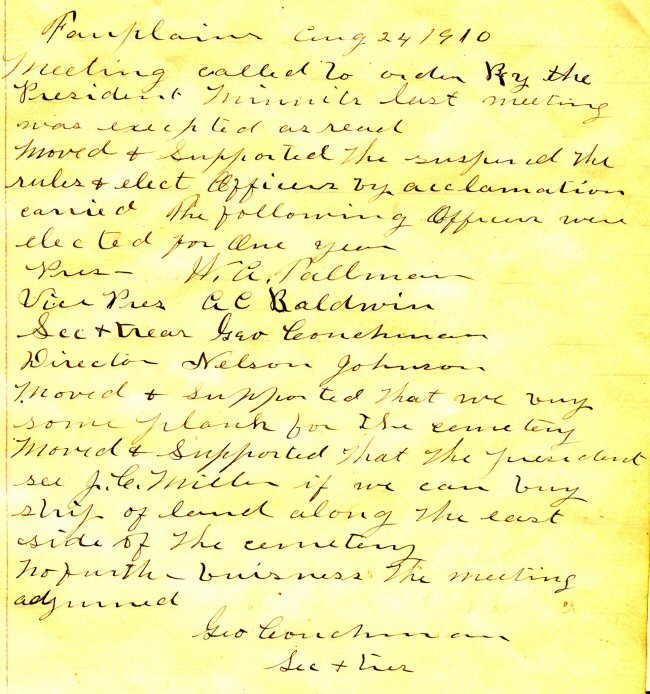 Fairplains Aug 24 1910
Meeting called to order By the
President Minnits last meeting
was excepted as read
Moved & Supported the suspend the
rules & elect Officers by acclamation
carried The following Officers were
elected for One year
Pres - H. A. Pallman
Vice Pres A C Baldwin
Sec & trear Geo Conchman
Director Nelson Johnson
Moved & Supported that we buy
some plank for the cemetery
Moved & Supported That the president
see J. C. Miller if we can buy
strip of land along the east
side of the cemetery
No furth buisness the meeting
adjurned
Geo Conchman
Sec & trer